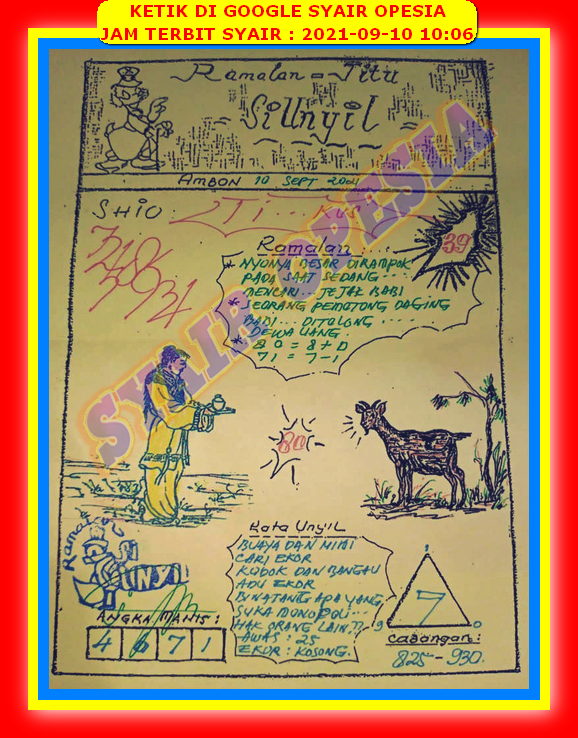 KETIK DI GOOGLE SYAIR OPESIA
JAM TERBIT SYAIR : 2021-09-10 10:06
Ramalan = Jitu
SiUnyil
AMBON 10 SEPT 2021
SHIO : Ti... Kus
39
Ramalan
* NYONYA BESAR DIRAMPOK
PADA SAAT SEDANG ....
MENCARI.. JEJAK BABI
* SEORANG PEMOTONG DAGING
BABI... DITOLONG ....
* DEWA UANG.
80 = 8+0
71 = 7-1
SYAIR OPESIA
80
Ramalan
SI
UNYIL
ANGKA MANIS :
4 6 7 1
Kata Unyil
BUAYA DAN MIMI
CARI EKOR
KODOK DAN BANGAU
ADU EKOR
BINATANG APA YANG
SUKA MONOPOLI...
HAK ORANG LAIN.??
AWAS : 25
EKOR : KOSONG.
1
7
9 0
CABANGAN :
825 - 930.